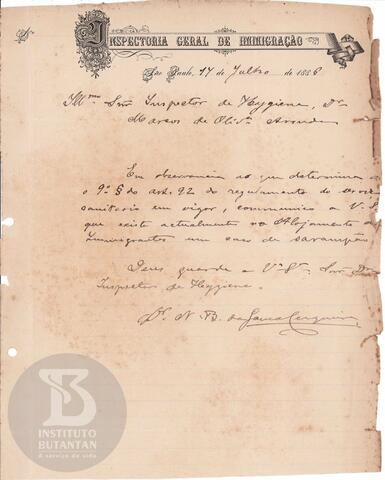 Nº
INSPECTORIA GERAL DE IMMIGRAÇÃO
São Paulo, 17 de Julho de 1886
Illmo Snr Inspector de Hygiene, Dr
Marcos de Olivª Arruda
Em observancia ao que determina
o 9º § do art. 92 do regulamento do
sanitario em vigor, communico a V. S.
que existe actualmente no Alojamento de
immigrantes um caso de sarampão
Deus guarde a Vª Sª Snr Dr
Inspector de Hygiene.
Dr. N. B. da Gama Cerqueira
INSTITUTO
BUTANTAN
A serviço da vida